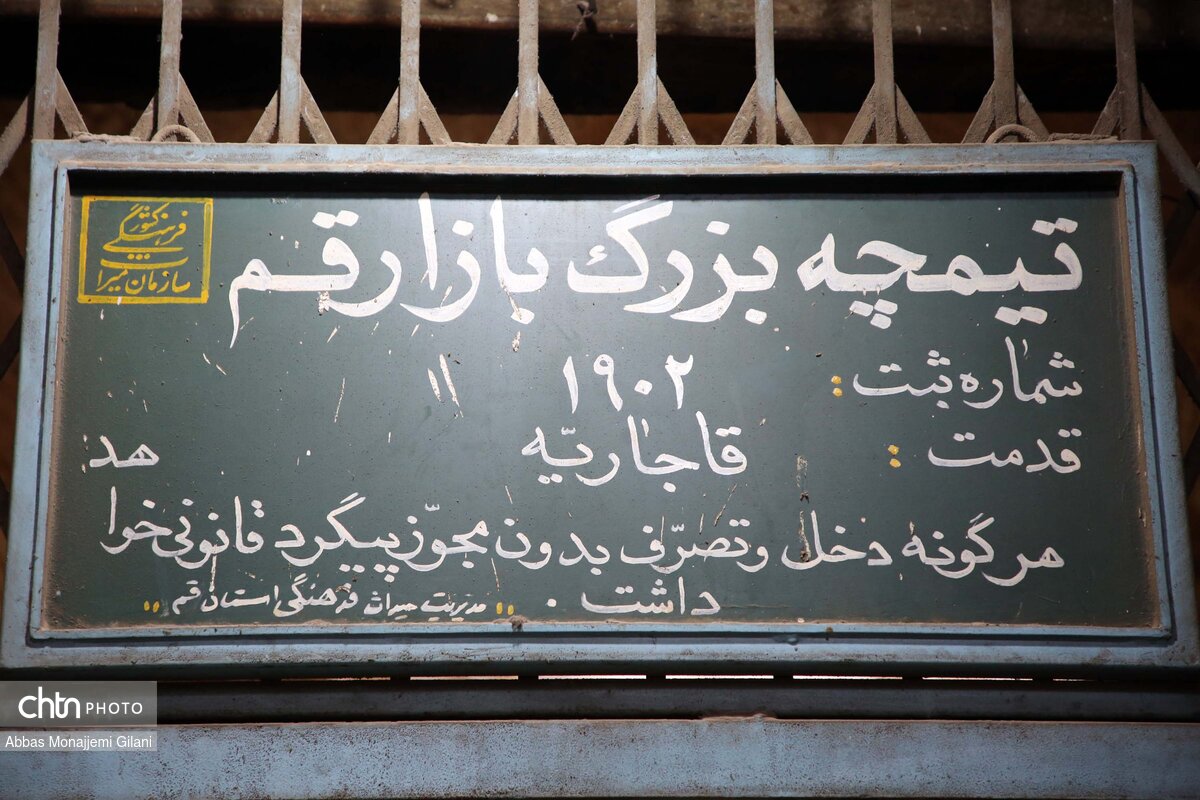 تیمچه بزرگ بازار قم
سازمان میراث
فرهنگی کشور
شماره ثبت : ۱۹۰۲ //
قدمت : قاجاریّه
هد
هرگونه دخل و تصرّف بدون مجوّز پیگرد قانونی خوا
داشت .
" مدیریت میراث فرهنگی استان قم "
chtn PHOTO
Abbas Monajjemi Gilani